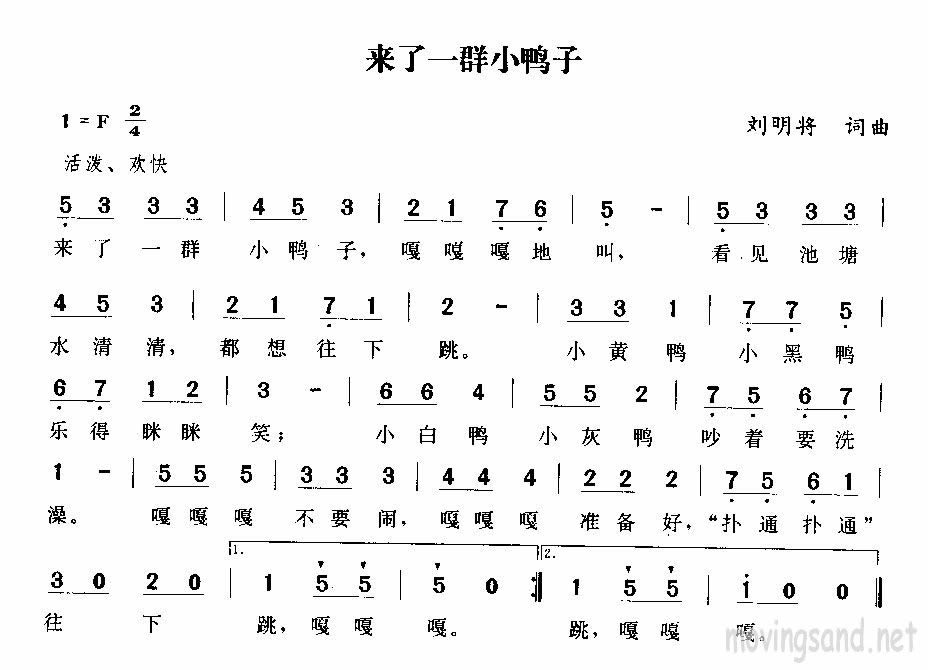 来了一群小鸭子
1 = F 2/4
刘明将 词曲
活泼、欢快
5 3 3 3 | 4 5 3 | 2 1 7 6 | 5 - | 5 3 3 3 |
来了一群 小鸭子，嘎嘎嘎地 叫， 看见池塘
4 5 3 | 2 1 7 1 | 2 - | 3 3 1 | 7 7 5 |
水清清，都想往下 跳。 小黄鸭 小黑鸭
6 7 1 2 | 3 - | 6 6 4 | 5 5 2 | 7 5 6 7 |
乐得眯眯 笑； 小白鸭 小灰鸭 吵着要洗
1 - | 5 5 5 | 3 3 3 | 4 4 4 | 2 2 2 | 7 5 6 1 |
澡。 嘎嘎嘎 不要闹，嘎嘎嘎 准备好，“扑通扑通”
1. 2.
3 0 2 0 | 1 5 5 | 5 0 :| 1 5 5 | 1 0 0 |
往 下 跳，嘎嘎 嘎。 跳，嘎嘎 嘎。
movingsand.net